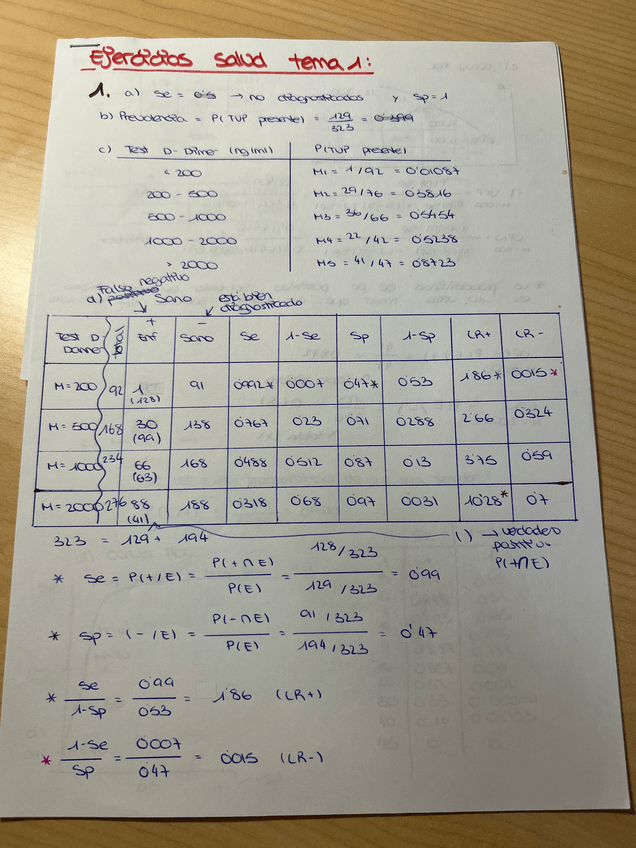 Ejercicios salud tema 1:
1. a) Se = 0'5 → no diagnosticados y Sp=1
b) Prevalencia = P(TVP presente) = 129/323 = 0'399
c) Test D-Dimer (ng/ml) P(TVP presente)
< 200 M1 = 1/92 = 0'01087
200 - 500 M2 = 29/76 = 0'3816
500 - 1000 M3 = 36/66 = 0'5454
1000 - 2000 M4 = 22/42 = 0'5238
> 2000 M5 = 41/47 = 0'8723
Falso negativo
d) Sano está bien diagnosticado
+ -
Test D-Dimer total Enf Sano Se 1-Se Sp 1-Sp LR+ LR-
M=200 92 1 (128) 91 0'992* 0'007 0'47* 0'53 1'86* 0'015*
M=500 168 30 (99) 138 0'767 0'23 0'71 0'288 2'66 0'324
M=1000 234 66 (63) 168 0'488 0'512 0'87 0'13 3'75 0'59
M=2000 276 88 (41) 188 0'318 0'68 0'97 0'031 10'28* 0'7
323 = 129 + 194 ( ) → verdadero positivo P(+∩E)
* Se = P(+/E) = P(+∩E)/P(E) = 128/323 / 129/323 = 0'99
* Sp = (-/E) = P(-∩E)/P(E) = 91/323 / 194/323 = 0'47
* Se/1-Sp = 0'99/0'53 = 1'86 (LR+)
* 1-Se/Sp = 0'007/0'47 = 0'015 (LR-)